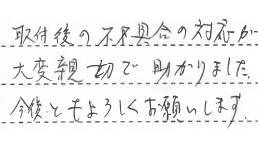 取付後の不具合の対応が
大変親切で助かりました。
今後ともよろしくお願いします。